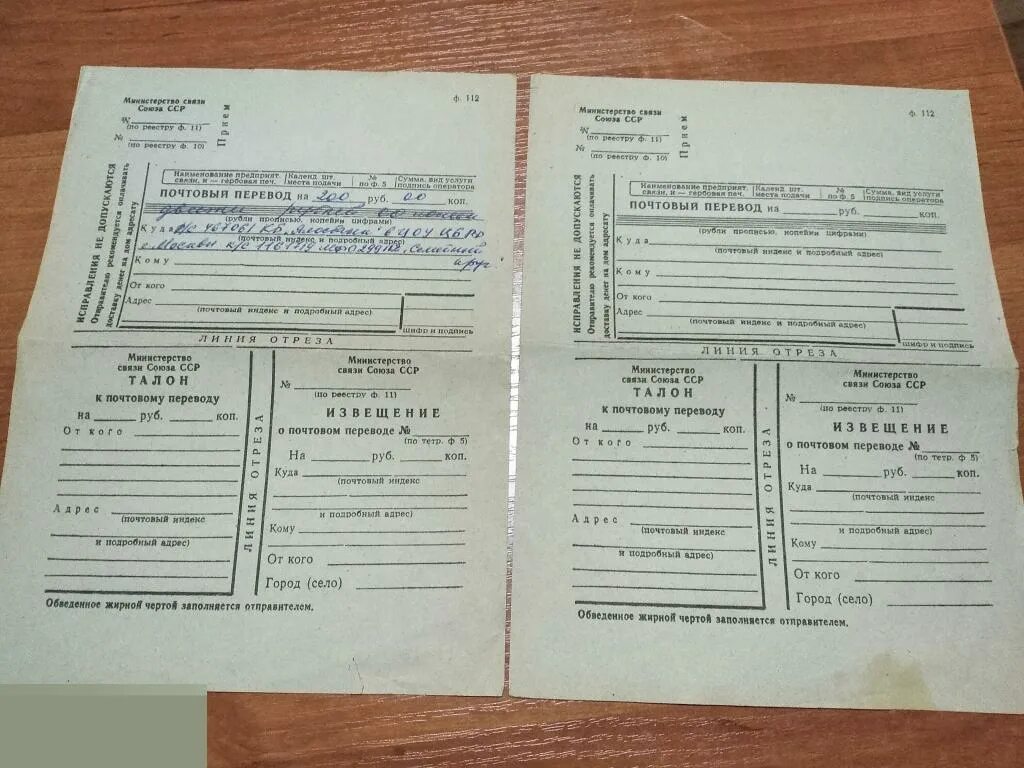 Министерство связи
Союза ССР
ф. 112
№
(по реестру ф. 11)
№
(по реестру ф. 10)
Прием
ИСПРАВЛЕНИЯ НЕ ДОПУСКАЮТСЯ
Отправителю рекомендуется оплачивать
доставку денег на дом адресату
Наименование предприят. связи, и — гербовая печ.
Календ. шт. места подачи
№ по ф. 5
Сумма, вид услуги подпись оператора
ПОЧТОВЫЙ ПЕРЕВОД на 200 руб. 00 коп.
двести рублей 00 копеек
(рубли прописью, копейки цифрами)
Куда р/с 467061 в ЦОУ
(почтовый индекс и подробный адрес)
г. Москвы к/с
Кому
От кого
Адрес
(почтовый индекс и подробный адрес)
шифр и подпись
ЛИНИЯ ОТРЕЗА
Министерство
связи Союза ССР
ТАЛОН
к почтовому переводу
на руб. коп.
От кого
Адрес
(почтовый индекс
и подробный адрес)
ЛИНИЯ ОТРЕЗА
Министерство
связи Союза ССР
№
(по реестру ф. 11)
ИЗВЕЩЕНИЕ
о почтовом переводе №
(по тетр. ф 5)
На руб. коп.
Куда
(почтовый индекс
и подробный адрес)
Кому
От кого
Город (село)
Обведенное жирной чертой заполняется отправителем.
Министерство связи
Союза ССР
ф. 112
№
(по реестру ф. 11)
№
(по реестру ф. 10)
Прием
ИСПРАВЛЕНИЯ НЕ ДОПУСКАЮТСЯ
Отправителю рекомендуется оплачивать
доставку денег на дом адресату
Наименование предприят. связи, и — гербовая печ.
Календ. шт. места подачи
№ по ф. 5
Сумма, вид услуги подпись оператора
ПОЧТОВЫЙ ПЕРЕВОД на руб. коп.
(рубли прописью, копейки цифрами)
Куда
(почтовый индекс и подробный адрес)
Кому
От кого
Адрес
(почтовый индекс и подробный адрес)
шифр и подпись
ЛИНИЯ ОТРЕЗА
Министерство
связи Союза ССР
ТАЛОН
к почтовому переводу
на руб. коп.
От кого
Адрес
(почтовый индекс
и подробный адрес)
ЛИНИЯ ОТРЕЗА
Министерство
связи Союза ССР
№
(по реестру ф. 11)
ИЗВЕЩЕНИЕ
о почтовом переводе №
(по тетр. ф 5)
На руб. коп.
Куда
(почтовый индекс
и подробный адрес)
Кому
От кого
Город (село)
Обведенное жирной чертой заполняется отправителем.